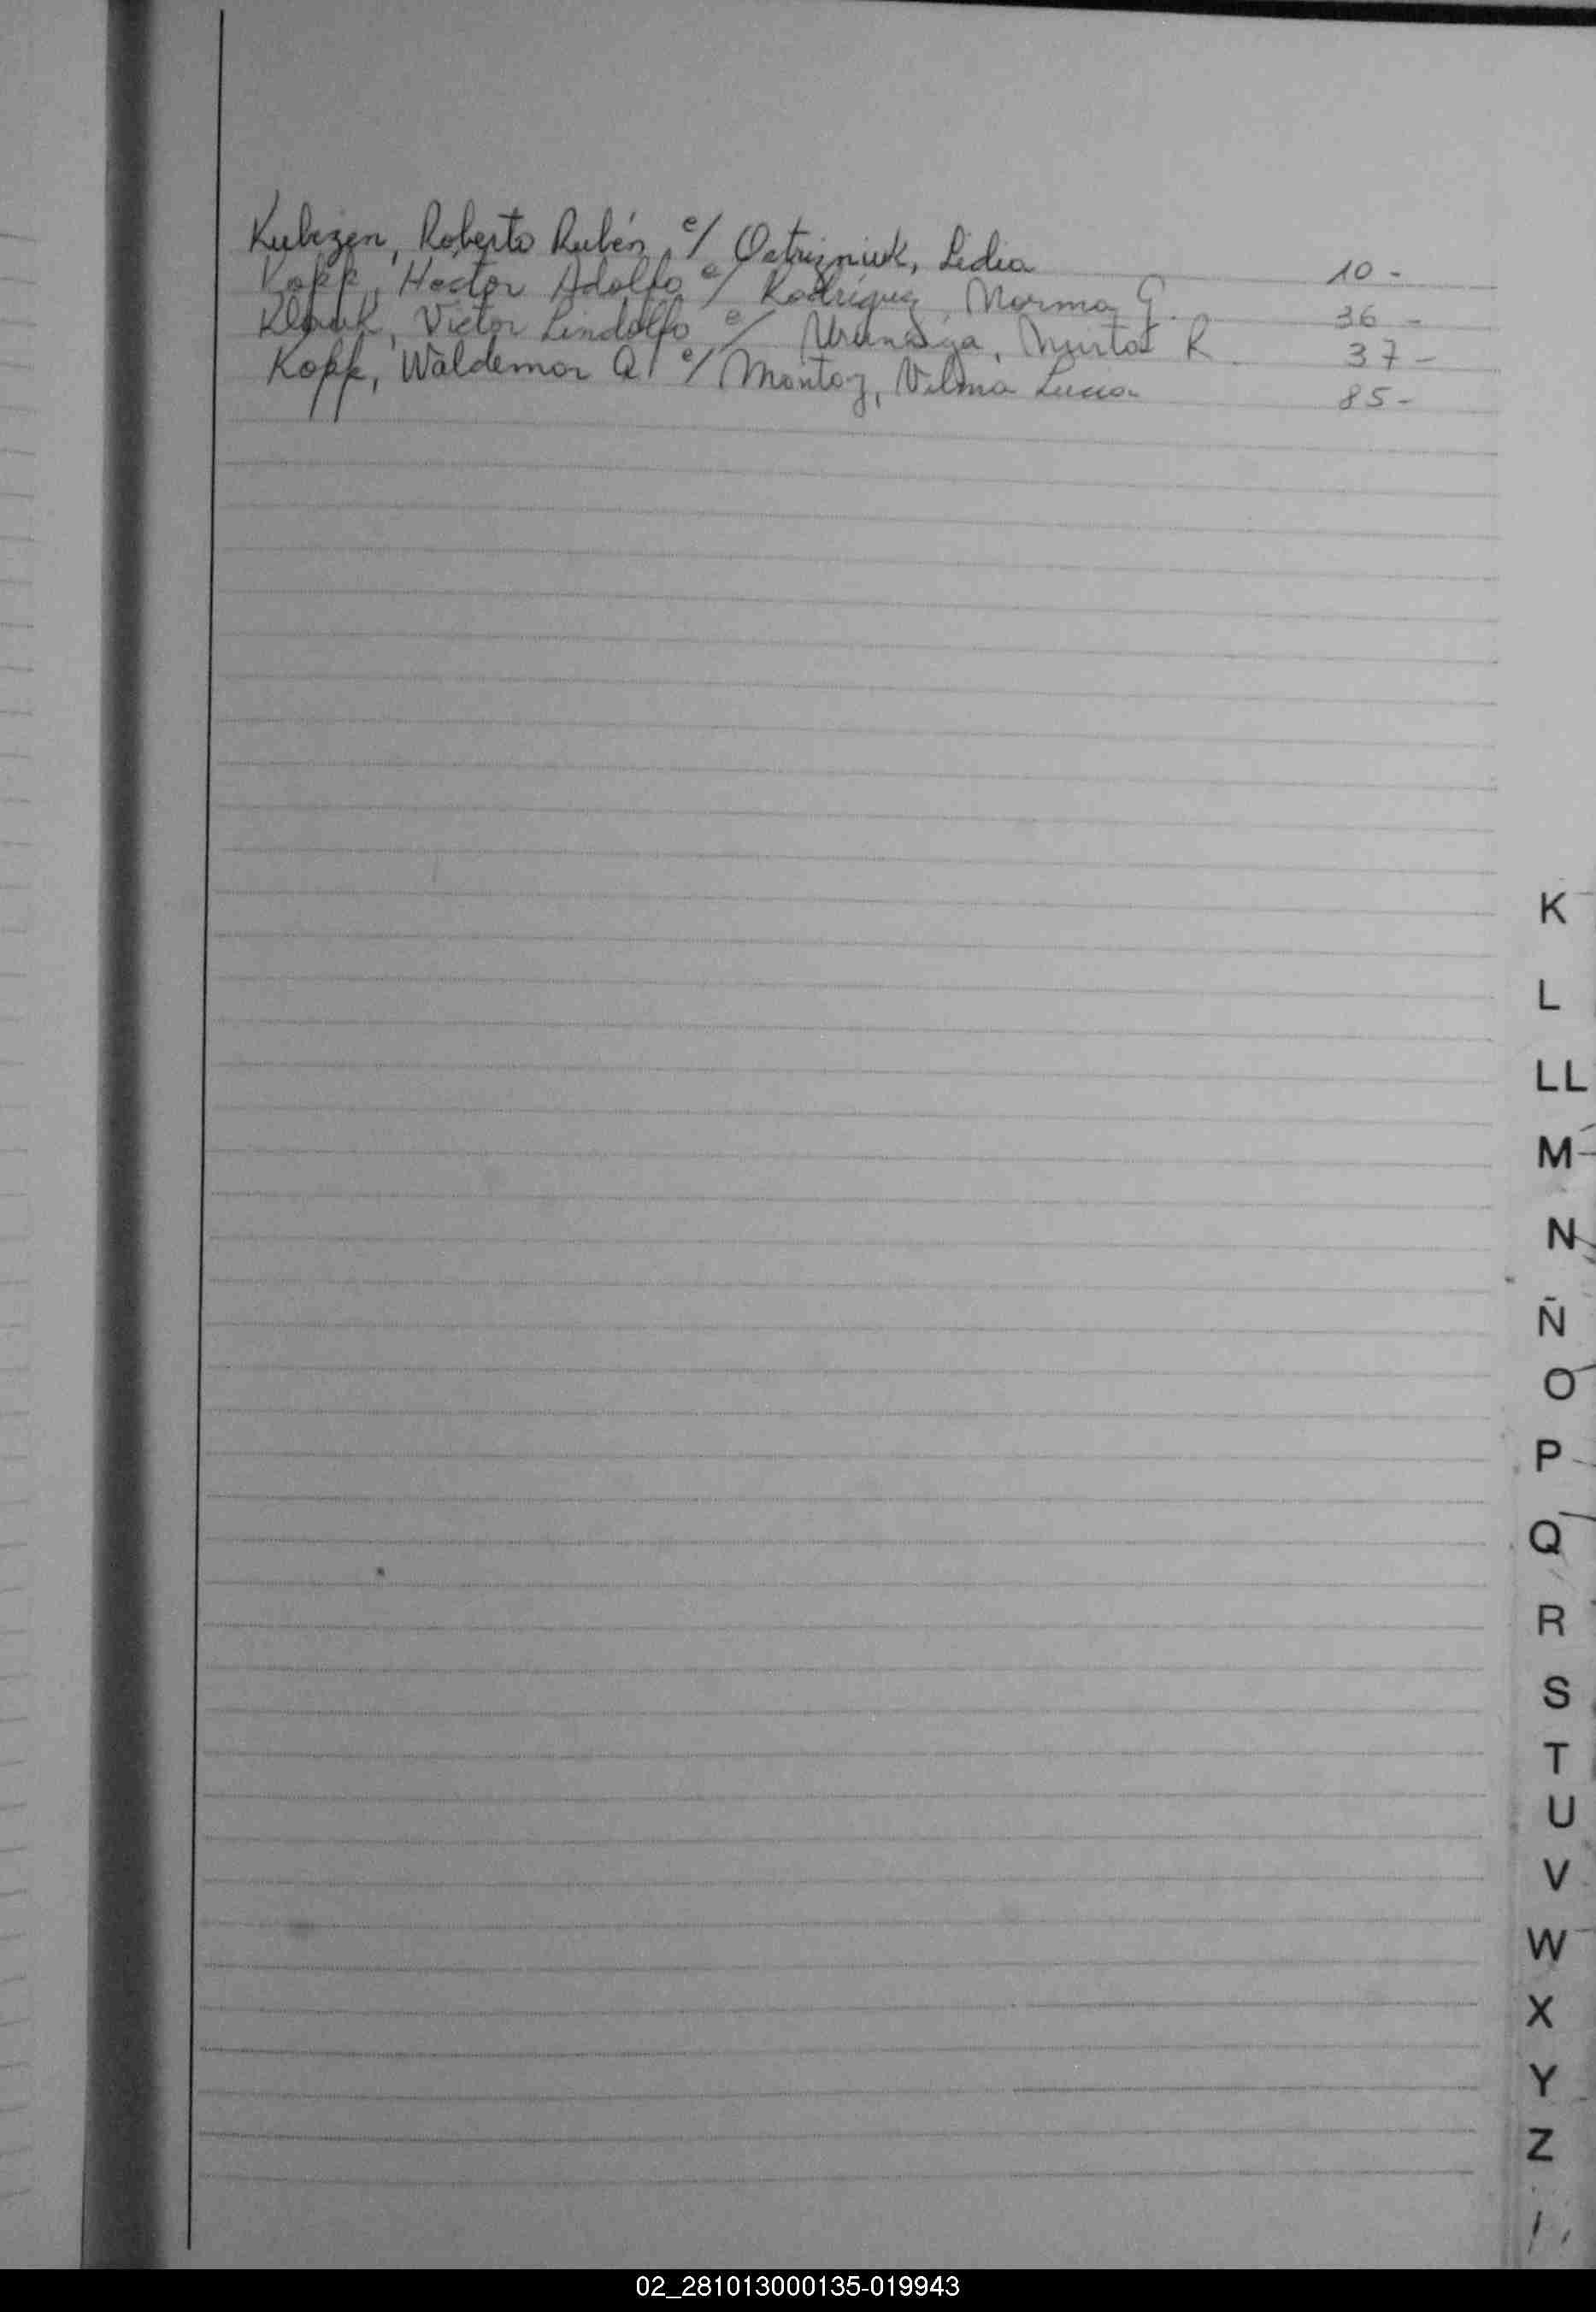 Kubizen, Roberto Rubén c/ Ostrizniuk, Lidia 10-
Kopp, Hector Adolfo c/ Rodríguez, Norma G. 36-
Victor Lindolfo c/ Mirta R 37-
Kopp, Waldemar A. c/ Montoz, Vilma Lucia 85-
K
L
LL
M
N
Ñ
O
P
Q
R
S
T
U
V
W
X
Y
Z
02_281013000135-019943